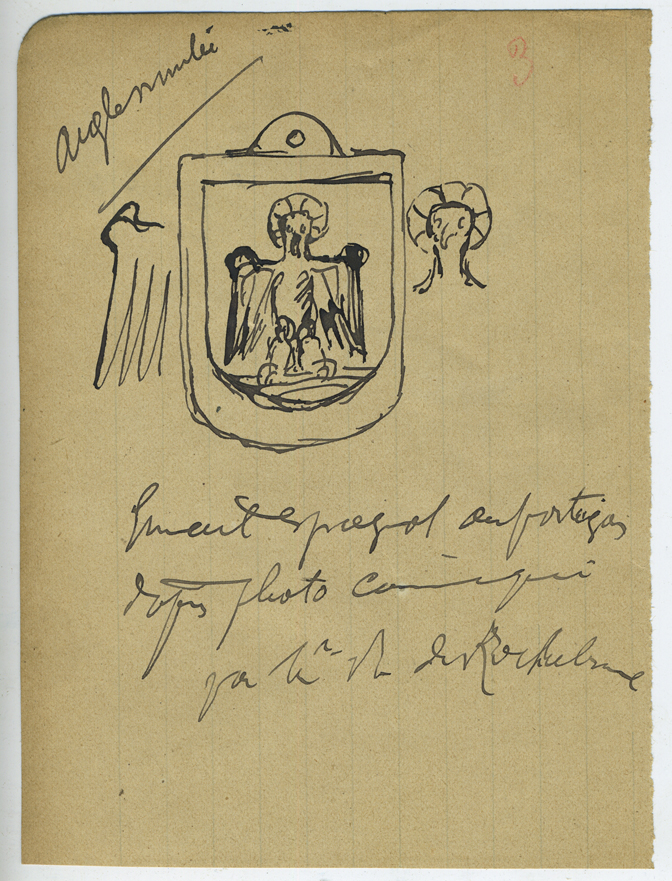 3
Aigle nimbé
émail espagnol ou portugais
d'après photo communiqué
par Mr de Rochebrune